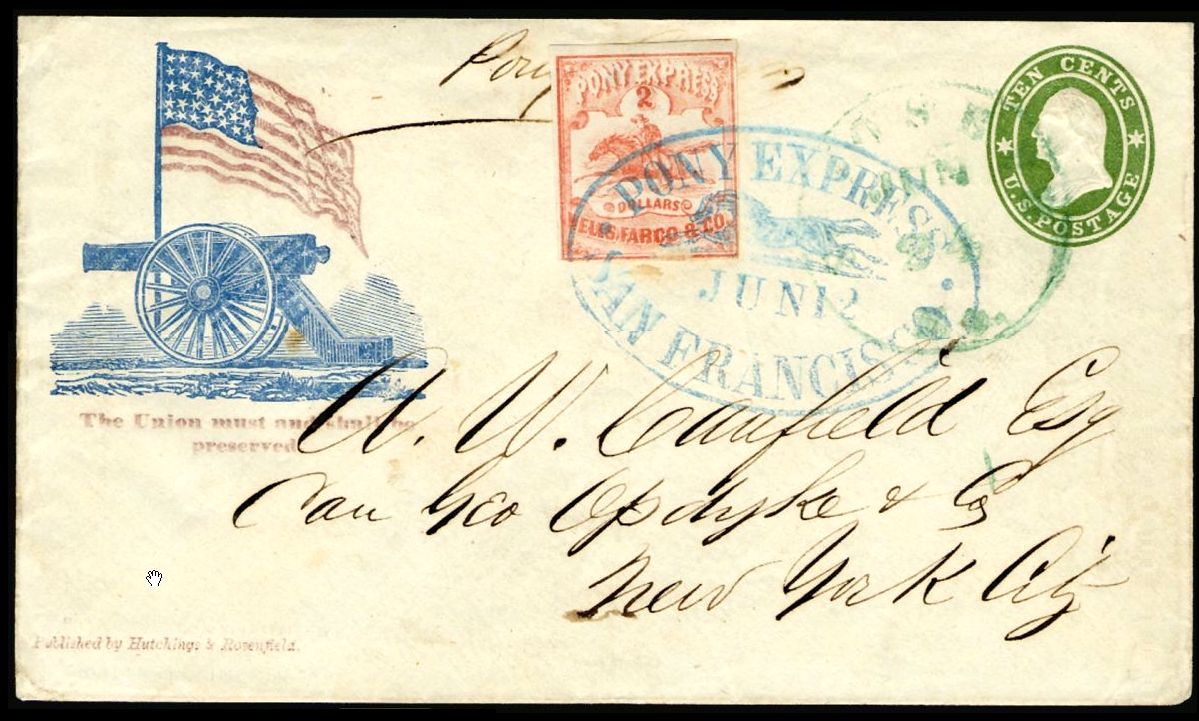 Pony
PONY EXPRESS
2
DOLLARS
WELLS, FARGO & CO.
TEN CENTS
U.S. POSTAGE
PONY EXPRESS
JUN 12
SAN FRANCISCO
The Union must and shall be
preserved
A. W. Canfield Esq
Care Geo Opdyke & Co
New York City
Published by Hutchings & Rosenfield.